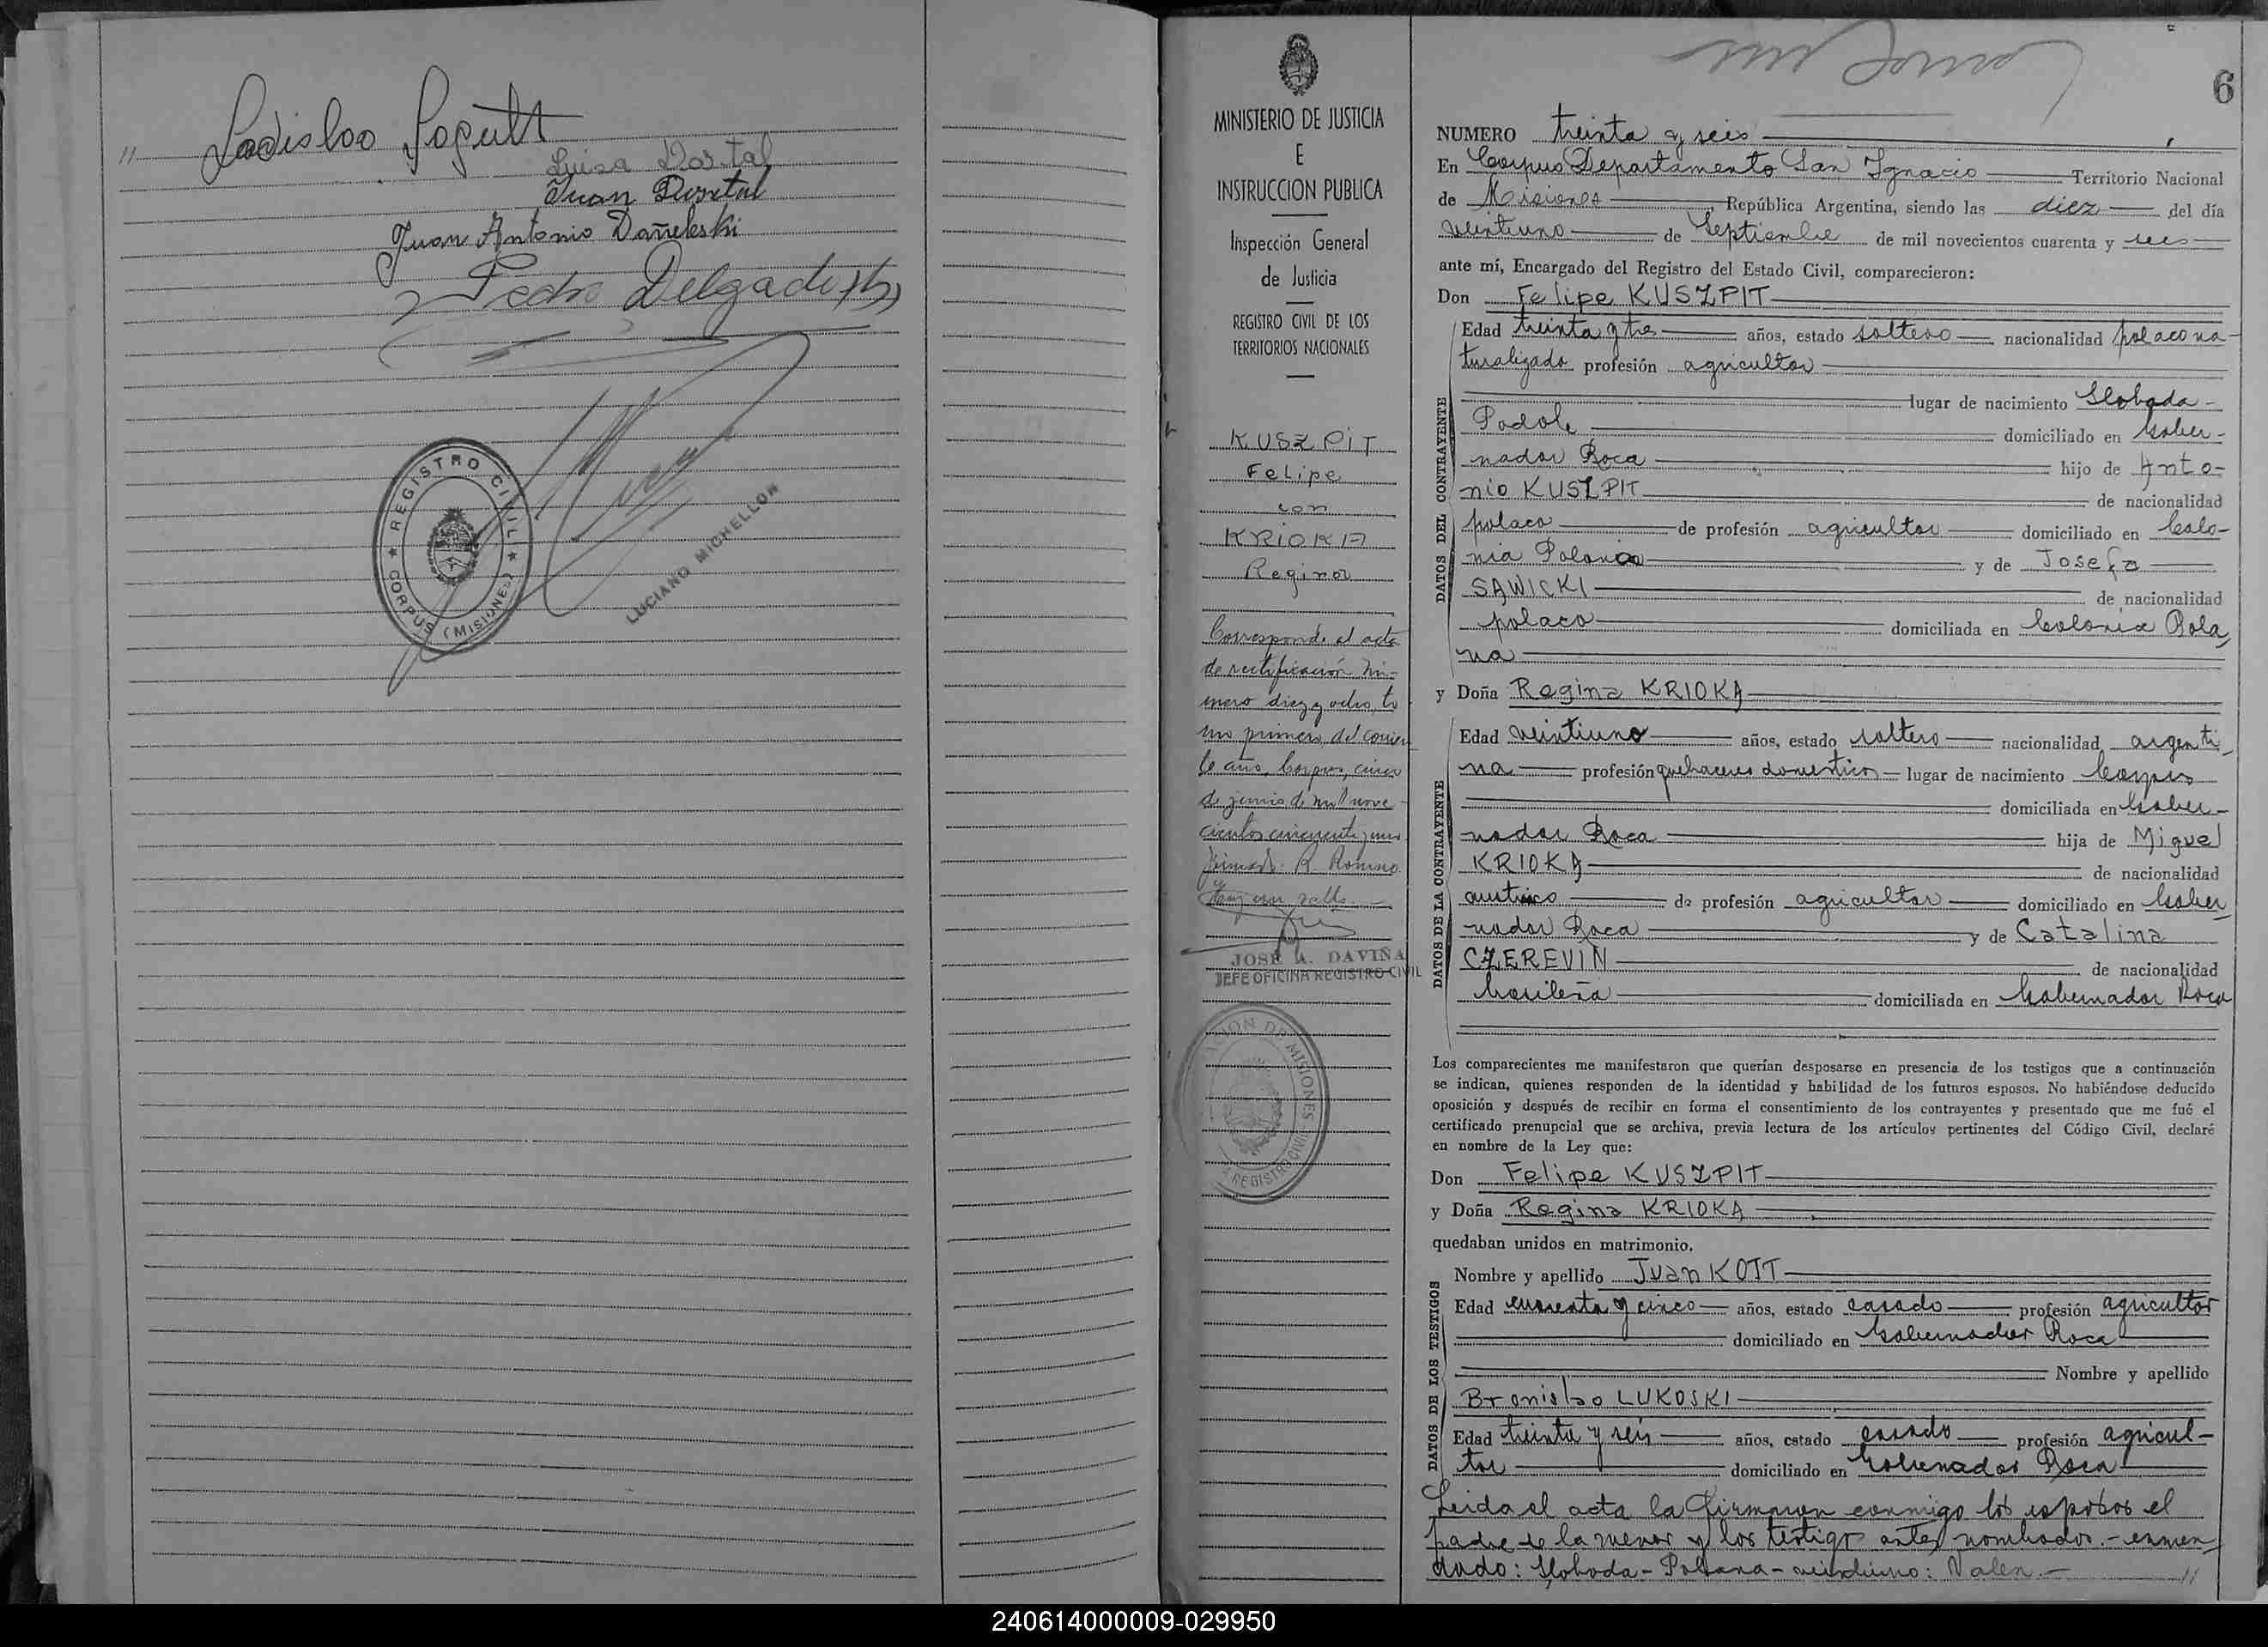 Ladislao
Luisa Dostal
Juan Dostal
Juan Antonio Dañeleski
Pedro Delgado (h)
REGISTRO CIVIL
CORPUS (MISIONES)
LUCIANO MICHELLON
MINISTERIO DE JUSTICIA
E
INSTRUCCION PUBLICA
Inspección General
de Justicia
REGISTRO CIVIL DE LOS
TERRITORIOS NACIONALES
KUSZPIT
Felipe
con
KRIOKA
Regina
Corresponde al acta
de rectificación nú-
mero diez y ocho, to
mo primero del corrien
te año, Corpus, cinco
de junio de mil nove-
cientos cincuenta y uno
firmado: R. Romero
Hay un sello.—
JOSE A. DAVIÑA
JEFE OFICINA REGISTRO CIVIL
DE MISIONES
REGISTRO CIVIL
6
NUMERO treinta y seis
En Corpus Departamento San Ignacio Territorio Nacional
de Misiones República Argentina, siendo las diez del día
veintiuno de Septiembre de mil novecientos cuarenta y seis
ante mí, Encargado del Registro del Estado Civil, comparecieron:
Don Felipe KUSZPIT
DATOS DEL CONTRAYENTE
Edad treinta y tres años, estado soltero nacionalidad polaco na-
turalizado profesión agricultor
lugar de nacimiento Sloboda-
Podole domiciliado en Gober-
nador Roca hijo de Anto-
nio KUSZPIT de nacionalidad
polaco de profesión agricultor domiciliado en Colo-
nia Polana y de Josefa
SAWICKI de nacionalidad
polaca domiciliada en Colonia Pola
na
y Doña Regina KRIOKA
DATOS DE LA CONTRAYENTE
Edad veintiuno años, estado soltero nacionalidad argenti
na profesión quehaceres domesticos lugar de nacimiento Corpus
domiciliada en Gober-
nador Roca hija de Miguel
KRIOKA de nacionalidad
austriaco de profesión agricultor domiciliado en Gober
nador Roca y de Catalina
CZEREVIN de nacionalidad
brasileña domiciliada en Gobernador Roca
Los comparecientes me manifestaron que querían desposarse en presencia de los testigos que a continuación
se indican, quienes responden de la identidad y habilidad de los futuros esposos. No habiéndose deducido
oposición y después de recibir en forma el consentimiento de los contrayentes y presentado que me fué el
certificado prenupcial que se archiva, previa lectura de los artículos pertinentes del Código Civil, declaré
en nombre de la Ley que:
Don Felipe KUSZPIT
y Doña Regina KRIOKA
quedaban unidos en matrimonio.
DATOS DE LOS TESTIGOS
Nombre y apellido Juan KOTT
Edad cuarenta y cinco años, estado casado profesión agricultor
domiciliado en Gobernador Roca
Nombre y apellido
Bronislao LUKOSKI
Edad treinta y seis años, estado casado profesión agricul-
tor domiciliado en Gobernador Roca
Leida el acta la firmaron conmigo los esposos el
padre de la menor y los testigos antes nombrados.- enmen
dado: Sloboda - Polana - veintiuno: Valen.- //
240614000009-029950